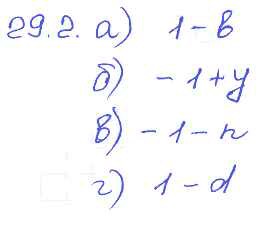 29.2. а) 1 - в
б) - 1 + y
в) - 1 - n
г) 1 - d